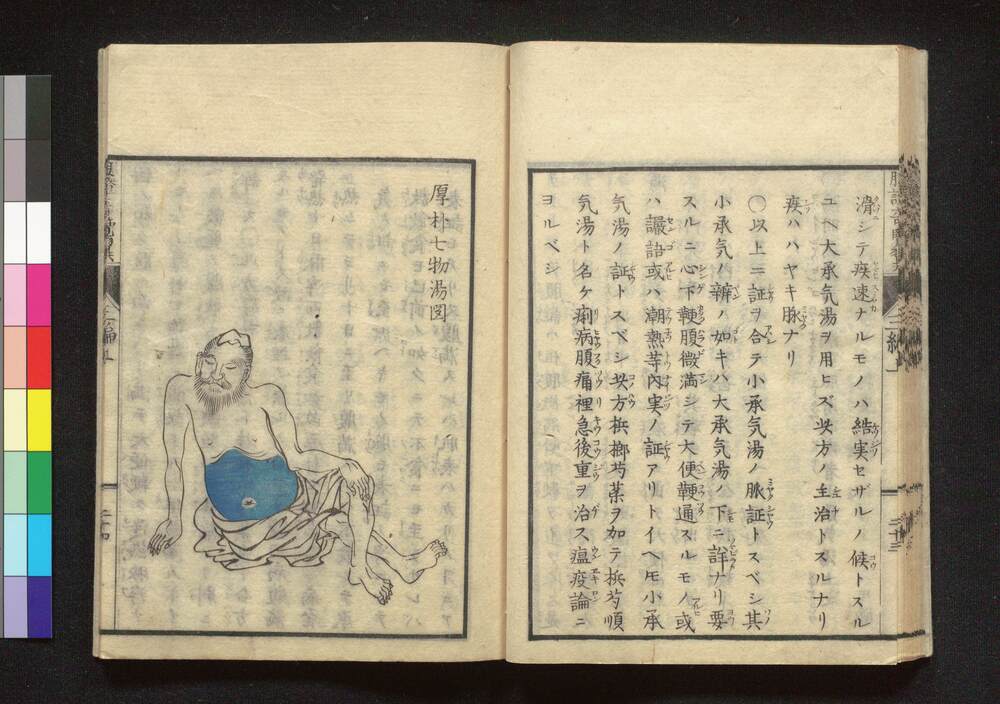 滑シテ疾速ナルモノハ結実セザルノ候トスル
ユヘ大承気湯ヲ用ヒズ此方ノ主治トスルナリ
疾ハハヤキ脉ナリ
〇以上ニ証ヲ合テ小承気湯ノ脈証トスベシ其
小承気ノ辨ノ如キハ大承気湯ノ下ニ詳ナリ要
スルニ心下鞕腹微満シテ大便鞕通スルモノ或
ハ讝語或ハ潮熱等内実ノ証アリトイヘ𪜈小承
気湯ノ証トスベシ此方梹榔芍薬ヲ加テ梹芍順
気湯ト名ケ痢病腹痛裡急後重ヲ治ス瘟疫論ニ
ヨルベシ
二十三
厚朴七物湯図
二十四